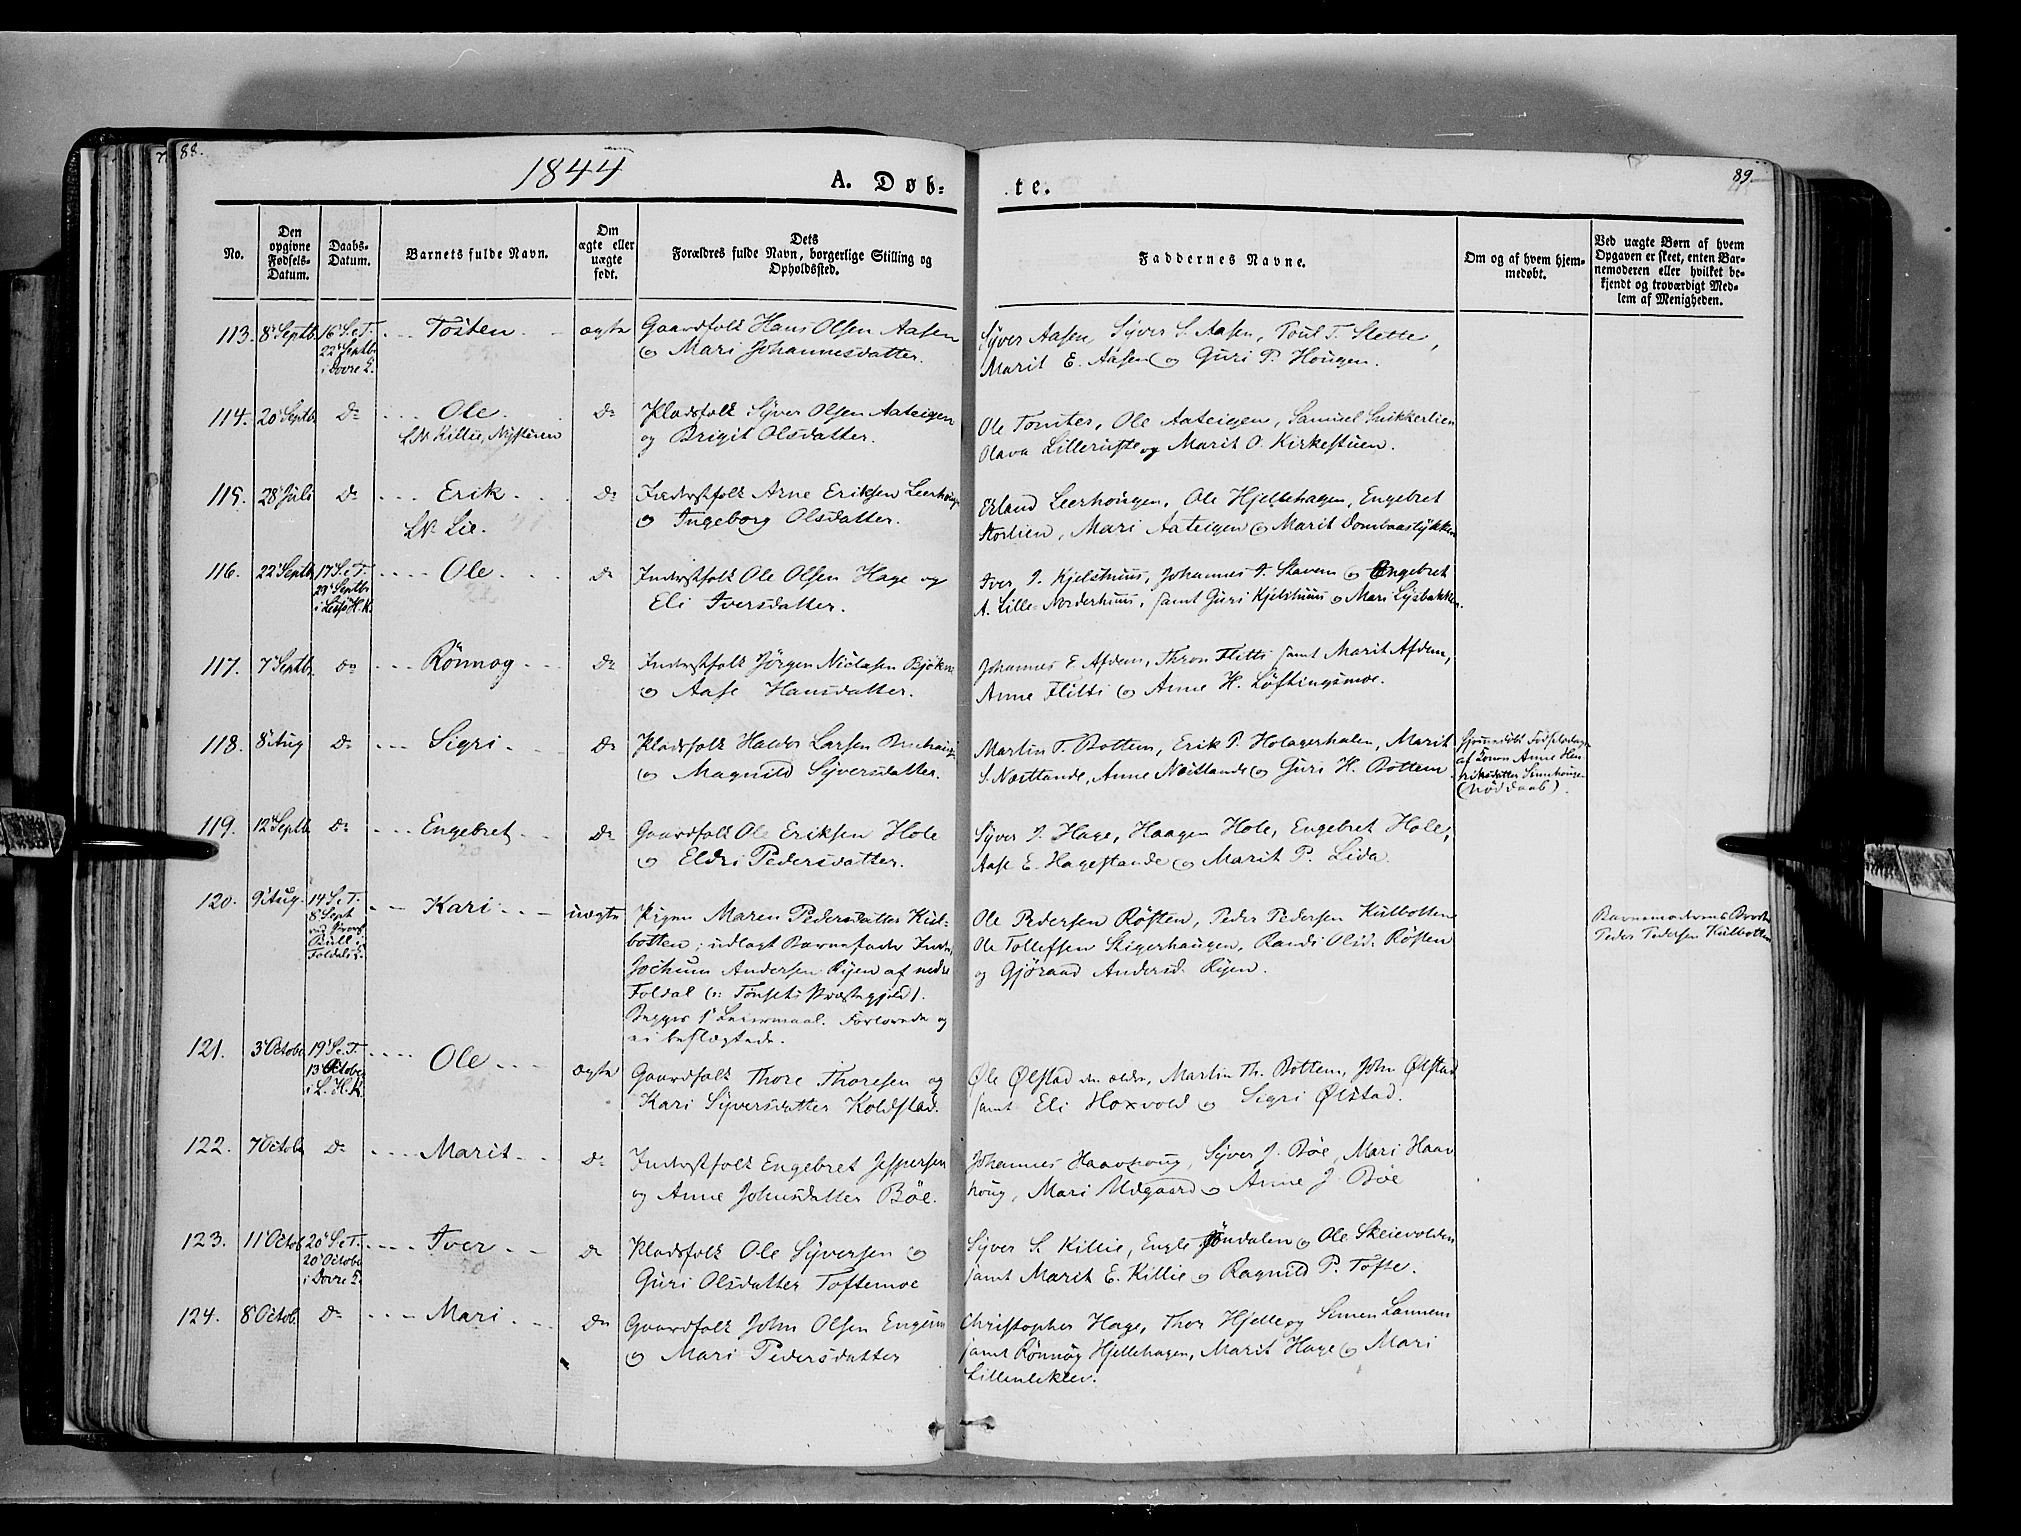 88.
1844
A. Døb-
te.
89.
No.
Den opgivne Fødsels-Datum.
Daabs-Datum.
Barnets fulde Navn.
Om ægte eller uægte født.
Dets Forældres fulde Navn, borgerlige Stilling og Opholdssted.
Faddernes Navne.
Om og af hvem hjemmedøbt.
Ved uægte Børn af hvem Opgaven er skeet, enten Barnemoderen eller hvilket bekjendt og troværdigt Medlem af Menigheden.
113. 8 Septb. 16 S. e T. Tosten ægte Gaardfolk Hans Olsen Aasen Syver Aasen, Syver S. Aasen, Poul T. Slette,
22 Septbr i Dovre K. og Mari Johannesdatter. Marit E. Aasen og Guri P. Hougen.
114. 20 Septb. Do Ole Do Pladsfolk Syver Olsen Aateigen Ole Tomter, Ole Aateigen, Samuel Snikkerlien
og Brigit Olsdatter. Olava Lillerusten og Marit O. Kirkestuen.
115. 28 Juli Do Erik Do Inderstfolk Arne Eriksen Leerhougen Erland Leerhougen, Ole Hjellehagen, Engebret
Lie. og Ingeborg Olsdatter. Storlien, Mari Aateigen og Marit Dombaaslykken
116. 22 Septb. 17 S. e T. Ole Do Inderstfolk Ole Olsen Hage og Iver J. Kjelshuus, Johannes J. Skavem og Engebret
29 Septbr i Lesje H. K. Eli Iversdatter. A. Lille-Norderhuus, samt Guri Kjelshuus og Mari Lysbakken.
117. 7 Septb. Do Rönnog Do Inderstfolk Jörgen Niclasen Bjökne Johannes E. Afdem, Thron Flitti samt Marit Afdem,
og Aase Hansdatter. Anne Flitti og Anne H. Löftingsmoe.
118. 8 Aug Do Sigri Do Pladsfolk Halvor Larsen Martin T. Bottem, Erik P. Holagerhalen, Marit Hjemmedøbt Fødselsdagen
og Magnild Syversdatter. S. Næstlande, Anne Næstlande og Guri H. Bottem af Konen Anne Henriksdatter
(Nöddaab).
119. 12 Septb. Do Engebret Do Gaardfolk Ole Eriksen Hole Syver J. Hage, Haagen Hole, Engebret Hole,
og Eldri Pedersdatter. Aase E. Hagestande og Marit P. Lida.
120. 9 Aug. 14 S. e T. Kari uægte Pigen Maren Pedersdatter Kulbotten; Ole Pedersen Røsten, Peder Pedersen Kulbotten Barnemoderens Broder
8 Sept Bull i Foldals K. udlagt Barnefader Ole Tollefsen Stigerhaugen, Randi Olsd. Røsten Peder Pedersen Kulbotten
Jochum Andersen Ryen af nedre og Gjøraad Andersd. Ryen.
Foldal (: Tönsets Præstegjeld).
Begges 1ste Leiermaal. Forlovede og
ei beslægtede.
121. 3 Octobr 19 S. e T. Ole ægte Gaardfolk Thore Thoresen og Ole Ølstad den ældre, Martin Th. Bottem, John Ølstad
13 October i L. H. K. Kari Syversdatter Koldstad. samt Eli Hoxvold og Sigri Ølstad.
122. 7 Octob Do Marit Do Inderstfolk Engebret Jespersen Johannes Haavhoug, Syver J. Böe, Mari Haav
og Anne Johnsdatter Böe. houg, Mari Midgaard og Anne J. Böe
123. 11 Octob 20 S. e T. Iver Do Pladsfolk Ole Syversen og Syver S. Killie, Engle Jöndalen og Ole Skeievolden
20 October i Dovre K. Guri Olsdatter Toftemoe samt Marit E. Killie og Ragnild P. Tofte.
124. 8 Octob. Do Mari Do Gaardfolk John Olsen Engeum Christopher Hage, Thor Hjelle og Simen Lannem
og Mari Pedersdatter samt Rønnøg Hjellehagen, Marit Hage og Mari
Lillenlekler.